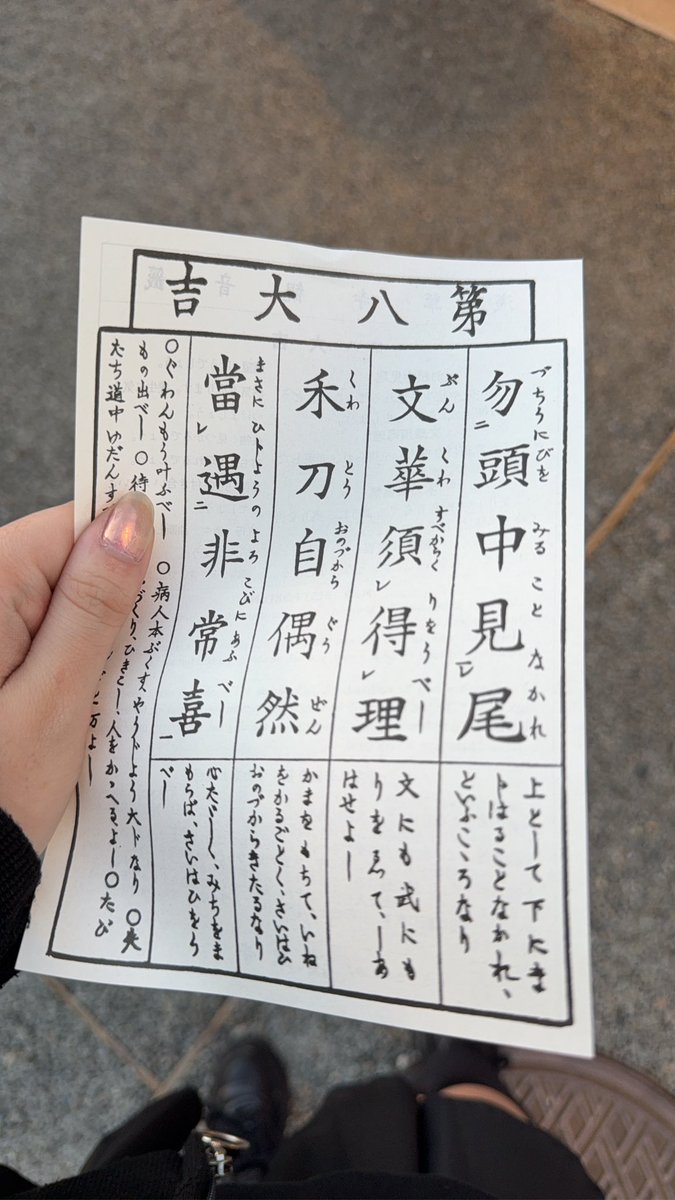 第八大吉
勿頭中見尾
づちうにびを みることなかれ
上として下にま
じはることなかれ、
といふこゝろなり
文華須得理
ぶんくわすべからくりをうべし
文にも武にも
りをゑて、しあ
はせよし
禾刀自偶然
くわとうおのづからぐうぜん
かまをもちて、いね
をかるごとく、さいはひ
おのづからきたるなり
當遇非常喜
まさにひじようのよろこびにあふべし
心大さしく、みちをま
もらば、さいはひをう
べし
○ぐわんもう叶ふべし ○病人本ぶくす、やうじよう大じなり ○失
もの出べし ○待 づくり、ひきこし、人をかゝへるよし○たび
たち道中ゆだんす 万よし